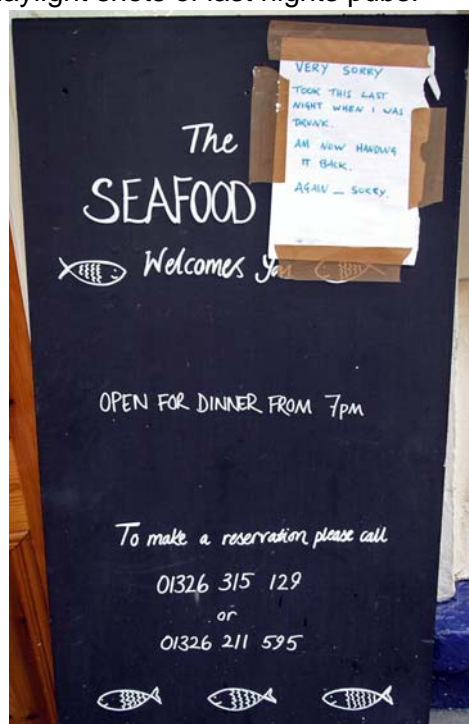 daylight shots of last nights pubs.
VERY SORRY
TOOK THIS LAST
NIGHT WHEN I WAS
DRUNK.
AM NOW HANDING
IT BACK.
AGAIN _ SORRY.
The
SEAFOOD
Welcomes You
OPEN FOR DINNER FROM 7pm
To make a reservation please call
01326 315 129
or
01326 211 595